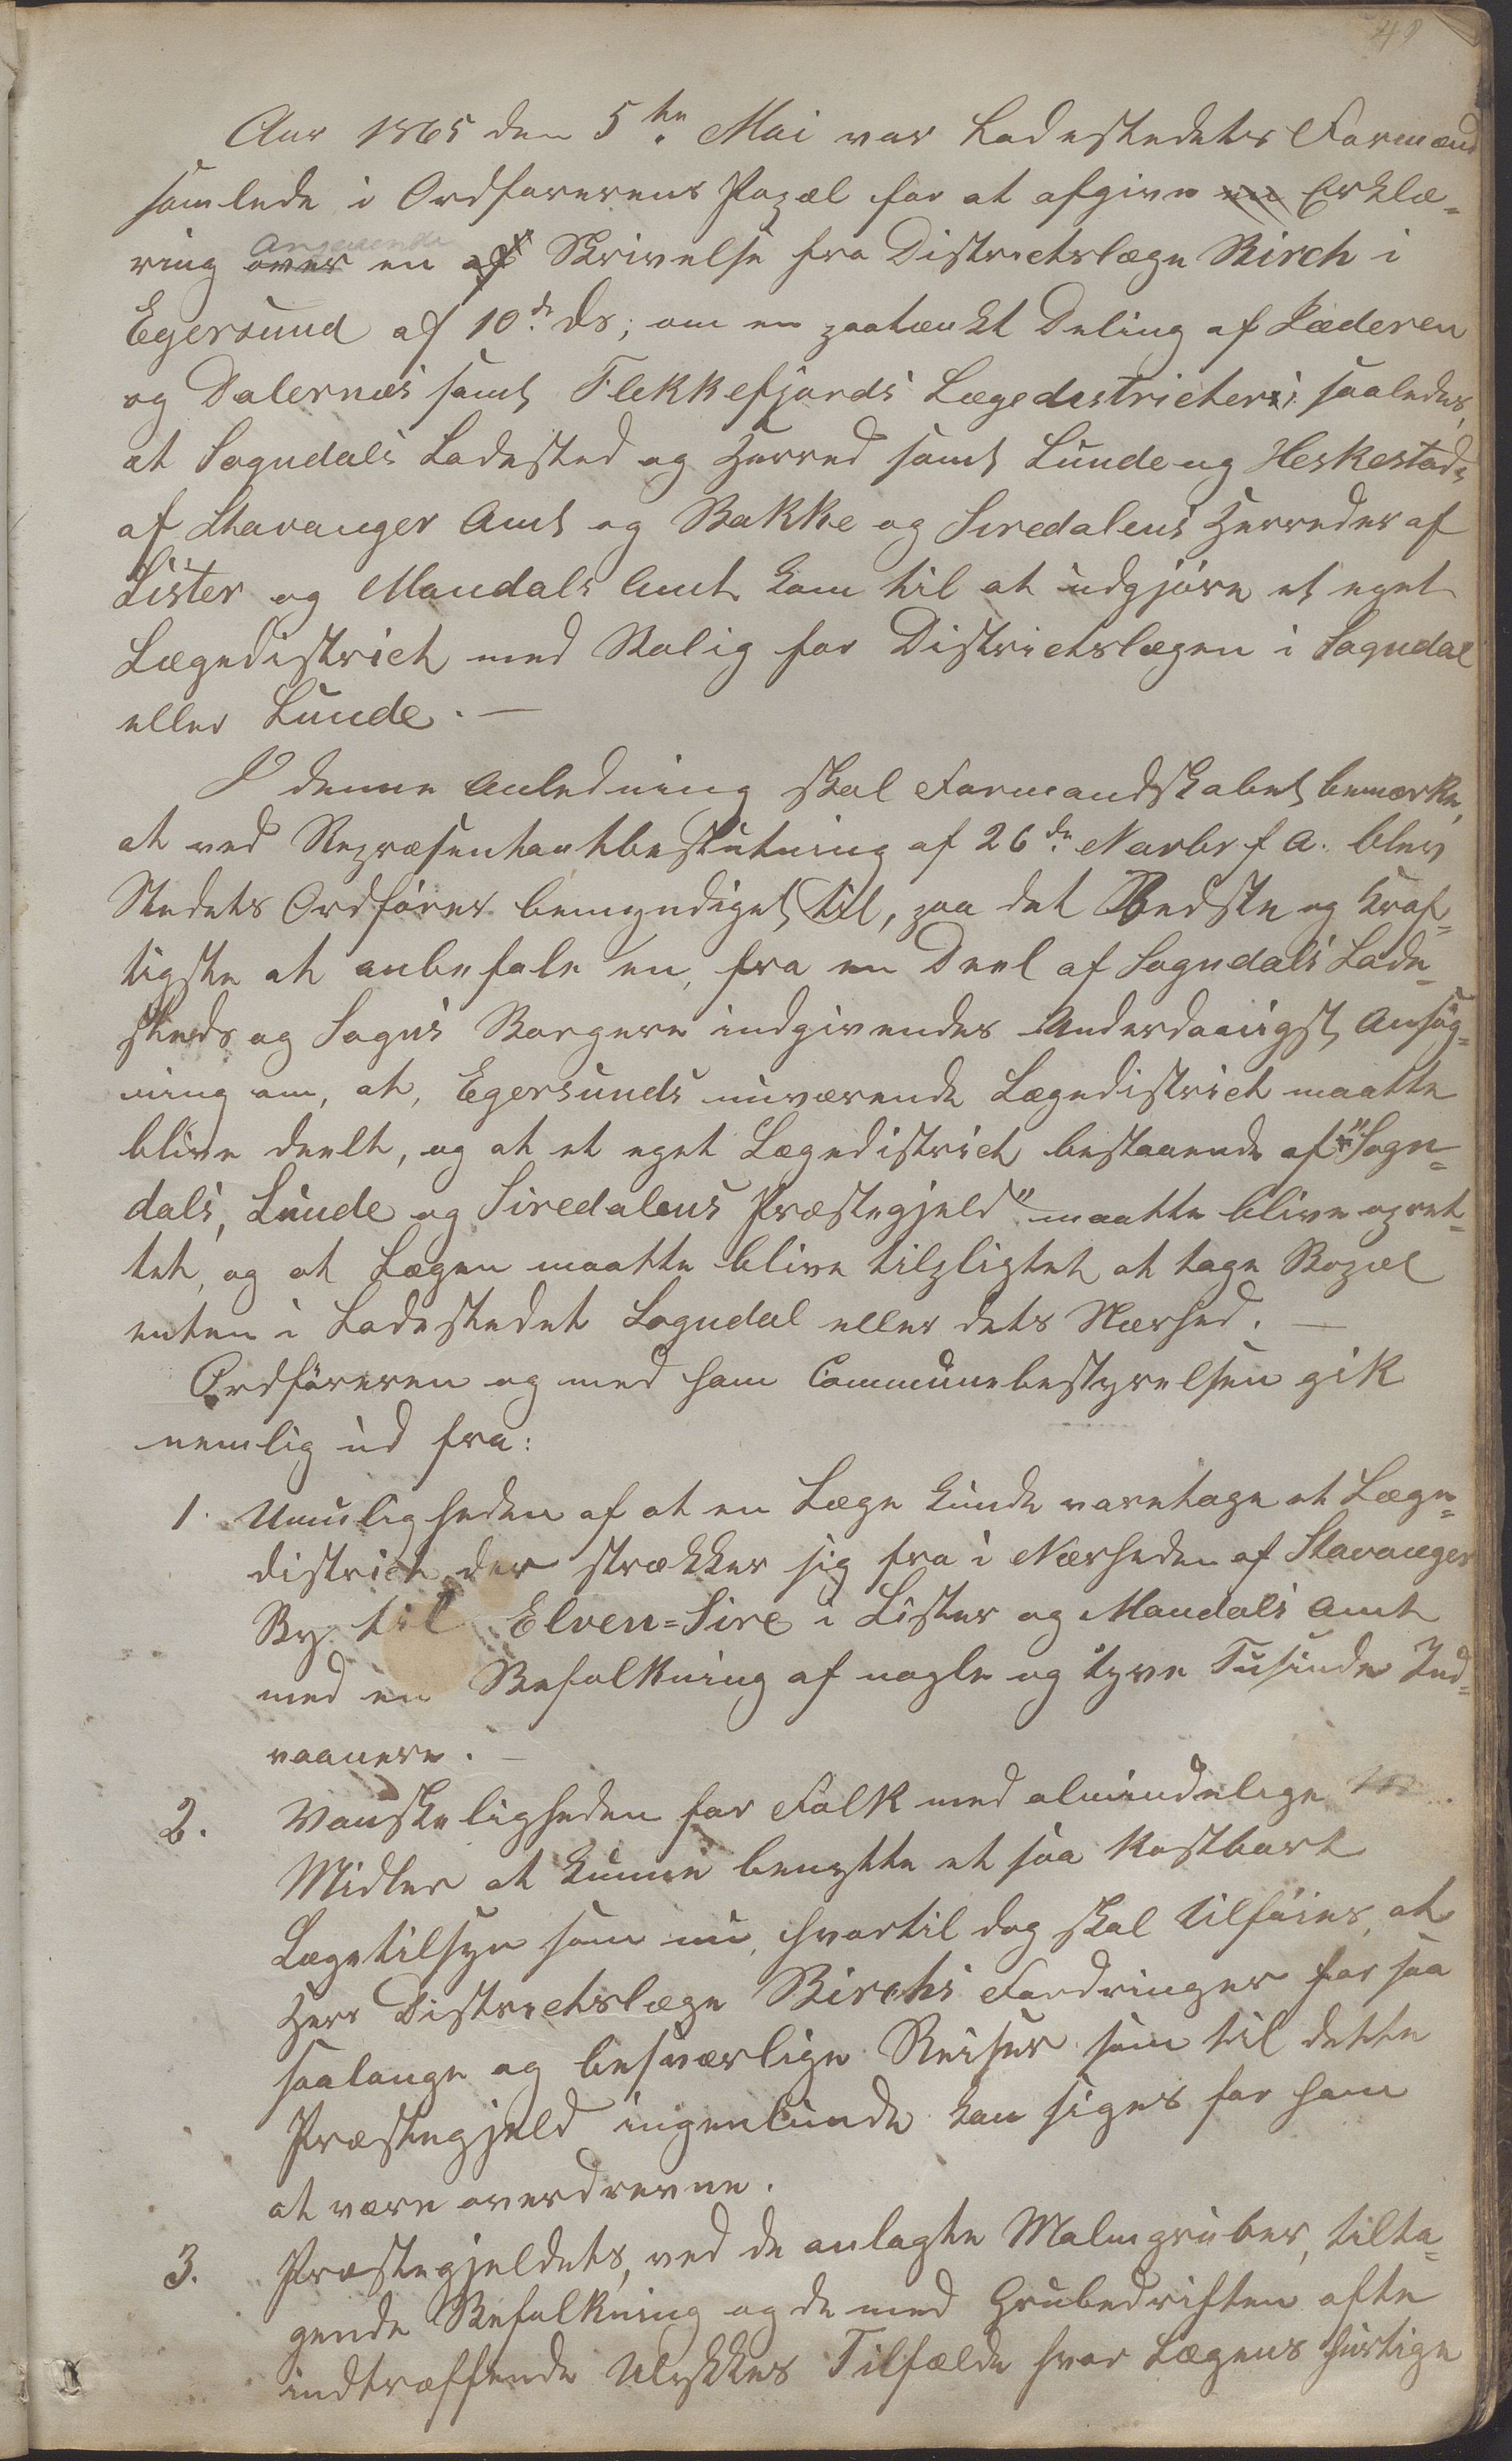 Aar 1865 den 5te Mai var Ladestedets Formænd
samlede i Ordførerens Bopæl for at afgive en Erklæ-
ring over Angaaende en af Skrivelse fra Districtslæge Birch i
Egersund af 10de ds, om en paatænkt Deling af Jæderen
og Dalernes samt Flekkefjords Lægedistricter; saaledes,
at Sogndals Ladested og Herred samt Lunde og Heskestads
af Stavanger Amt og Bakke og Siredalens Herreder af
Lister og Mandals Amt kom til at udgjøre et eget
Lægedistrict med Bolig for Districtslægen i Sogndal
eller Lunde. —
I denne Anledning skal Formandskabet bemærke,
at ved Repræsentantbeslutning af 26de Novbr f A. blev
Stedets Ordfører bemyndiget til, paa det Bedste og Kraf-
tigste at anbefale en, fra en Deel af Sogndals Lade-
steds og Sogns Borgere indgivendes Underdanigst Ansøg-
ning om, at, Egersunds nuværende Lægedistrict maatte
blive deelt, og at et eget Lægedistrict bestaaende af "Sogn-
dals, Lunde og Siredalens Præstegjeld" maatte blive opret-
tet, og at Lægen maatte blive tilpligtet at tage Bopæl
enten i Ladestedet Sogndal eller dets Nærhed. —
Ordføreren og med ham Communebestyrelsen gik
nemlig ud fra:
1. Umuligheden af at en Læge kunde varetage et Læge-
district der strækker sig fra i Nærheden af Stavanger
By til Elven=Sire i Lister og Mandals Amt
med en Befolkning af nogle og tyve Tusinde Ind-
vaanere. —
2. Vanskeligheden for Folk med almindelige
Midler at kunne benytte et saa kostbart
Lægetilsyn som nu, hvortil dog skal tilføies, at
Herr Districtslæge Birchs Fordringer for saa
saalange og besværlige Reiser som til dette
Præstegjeld ingenlunde kan siges for ham
at være overdrevne.
3. Præstegjeldets, ved de anlagte Malmgruber, tilta-
gende Befolkning og de med Grubedriften ofte
indtræffende Ulykkes Tilfælde hvor Lægens hurtige